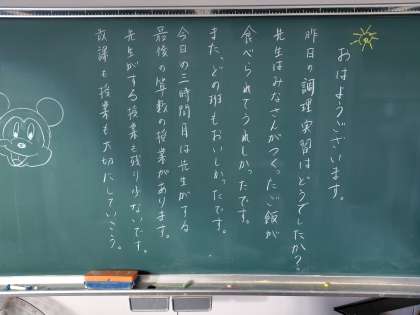 おはようございます。
昨日の調理実習はどうでしたか?
先生はみなさんがつくったご飯が
食べられてうれしかったです。
また、どの班もおいしかったです。
今日の三時間目は先生がする
最後の算数の授業があります。
先生がする授業も残り少ないです。
放課も授業も大切にしていこう。